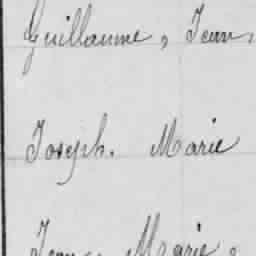 Guillaume, Jean,
Joseph. Marie
Marie,